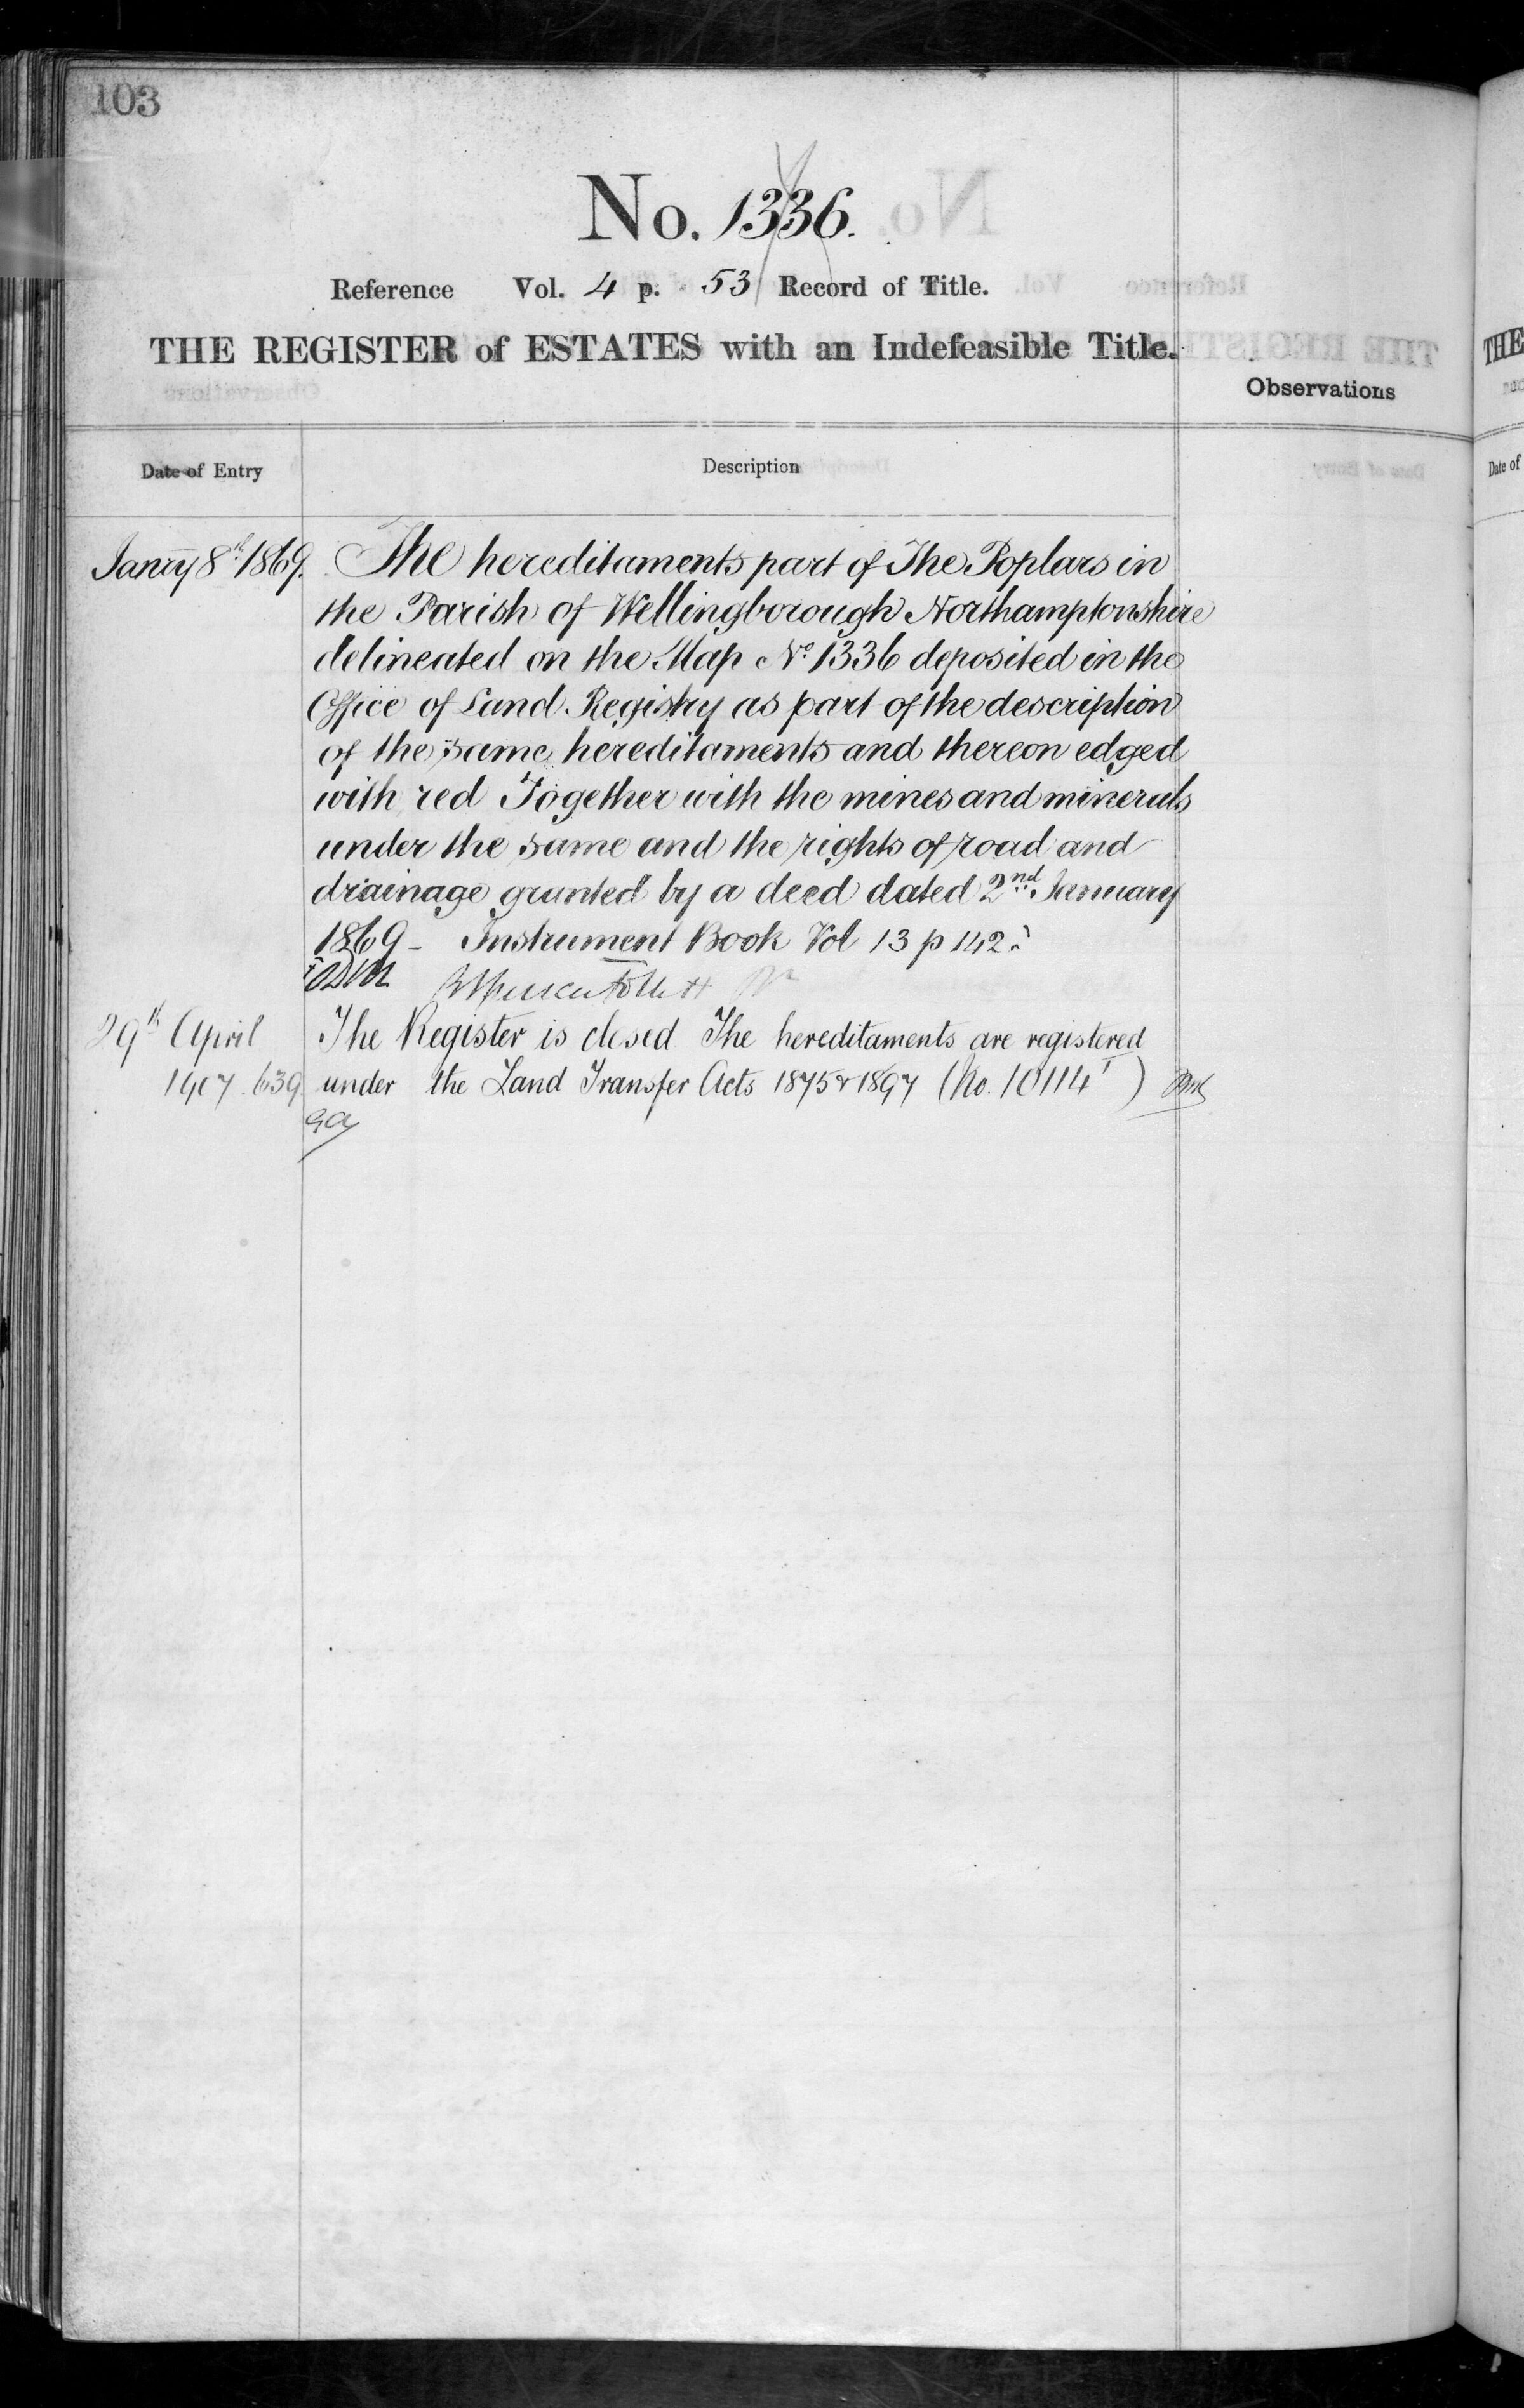 103
No. 1336.
Reference Vol. 4 p. 53 Record of Title.
THE REGISTER of ESTATES with an Indefeasible Title.
Observations
Date of Entry
Description
Janry 8th 1869.
The hereditaments part of The Poplars in
the Parish of Wellingborough Northamptonshire
delineated on the Map No. 1336 deposited in the
Office of Land Registry as part of the description
of the same hereditaments and thereon edged
with red Together with the mines and minerals
under the same and the rights of road and
drainage granted by a deed dated 2nd January
1869 - Instrument Book Vol 13 p 142.
29th April
1907. 639
The Register is closed. The hereditaments are registered
under the Land Transfer Acts 1875 & 1897 (No. 10114)
THE
Date of